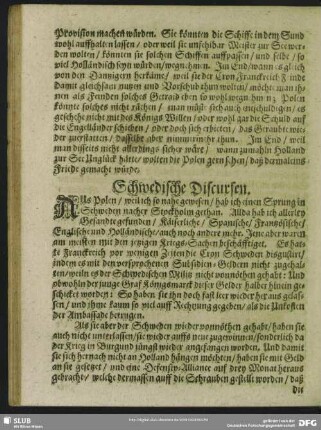 Provision machen würden. Sie könnten die Schiffe in dem Sund
wohl auffhalten lassen / oder weil sie unfehlbar Meister zur See wer-
den wolten / könnten sie solchen Schiffen auffpassen / und selbe / so
viel Holländisch seyn würden / wegnehmen. Im End / wann es gleich
von den Dannigern herkäme / weil sie der Cron Franckreich Feinde
damit gleichsam nutzen und Vorschub thun wolten / möchte man ih-
nen als Feinden solches Getraid eben so wohl wegnehmen; Polen
könnte solches nicht rächen / man müßt sich auch entschuldigen / es
geschehe nicht mit des Königs Willen / oder wohl gar die Schuld auf
die Engelländer schieben / oder doch sich erbieten / das Geraubte wie-
der zuerstatten / dasselbe aber nimmermehr thun. Im End / weil
man dißseits nicht allerdings sicher wäre / wann zumahln Holland
zur See Unglück hätte / wolten die Polen gern sehen / daß dermaleins
Friede gemacht würde.
Schwedische Discursen.
Als Polen / weil ich so nahe gewesen / hab ich einen Sprung in
Schweden nacher Stockholm gethan. Allda hab ich allerley
Gesandte gefunden / Käiserliche / Spanische / Frantzösische /
Englische und Holländische / auch noch andere mehr. Jene aber waren
am meisten mit den jetzigen Kriegs-Sachen beschäfftiget. Es hat-
te Franckreich vor wenigen Zeiten die Cron Schweden disgustirt /
indem es mit den versprochenen Subsidien-Geldern nicht zugehal-
ten / weiln es der Schwedischen Miliz nicht vonnöthen gehabt: Und
obwohln der junge Graf Königsmarck dieser Gelder halber hinein ge-
schicket worden: So haben sie ihn doch fast leer wieder heraus gelas-
sen / und ihme kaum so viel auff Rechnung gegeben / als die Unkosten
der Ambassade betrugen.
Als sie aber der Schweden wieder vonnöthen gehabt / haben sie
auch nicht unterlassen / sie wieder auffs neue zugewinnen / sonderlich da
der Krieg in Burgund jüngst wieder angefangen worden. Und damit
sie sich hernach nicht an Holland hängen möchten / haben sie mit Geld
an sie gesetzet / und eine Defensiv-Alliance auf drey Monat heraus
gebracht / welche dermassen auff die Schrauben gestellt worden / daß
die
SLUB
Wir führen Wissen.